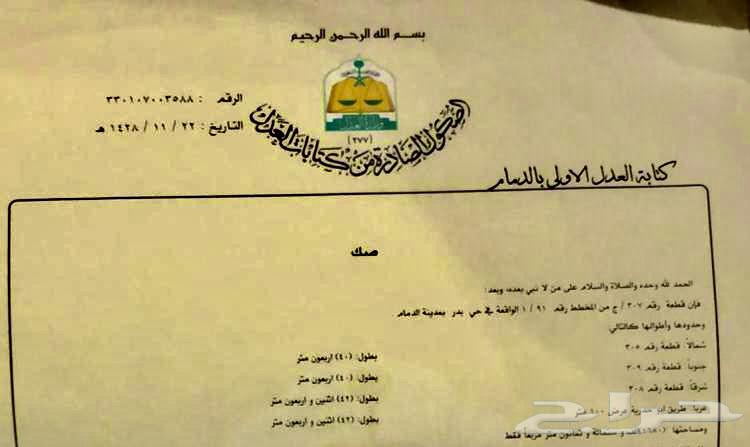 بسم الله الرحمن الرحيم
الرقم : ٣٣٠١٠٧٠٠٣٥٨٨
التاريخ : ٢٢ / ١١ / ١٤٢٨ هـ
وزارة العدل
(٢٧٧)
الصكوك الصادرة من كتابات العدل
كتابة العدل الاولى بالدمام
صك
الحمد لله وحده والصلاة والسلام على من لا نبي بعده، وبعد:
فإن قطعة رقم ٣٠٧ / ج من المخطط رقم ٩١ / ١ الواقعة في حي بدر بمدينة الدمام
وحدودها وأطوالها كالتالي
شمالاً: قطعة رقم ٣٠٥ بطول: (٤٠) اربعون متر
جنوباً: قطعة رقم ٣٠٩ بطول: (٤٠) اربعون متر
شرقاً: قطعة رقم ٣٠٨ بطول: (٤٢) اثنين و اربعون متر
غرباً: طريق ابو حدرية عرض ١٠٠ متر بطول: (٤٢) اثنين و اربعون متر
ومساحتها (١٦٨٠) و ستمائة و ثمانون متر مربعاً فقط
حراج